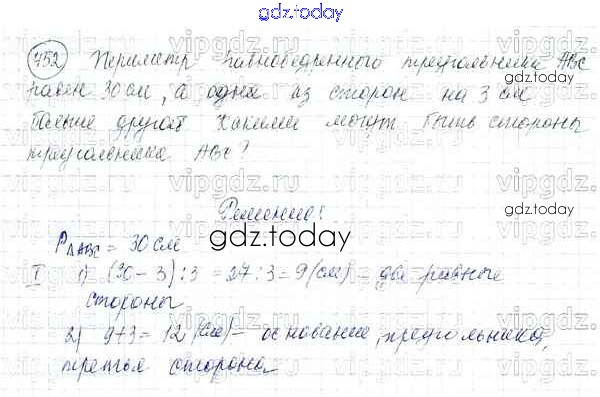 gdz.today
752 Периметр равнобедренного треугольника ABC
равен 30 см, а одна из сторон на 3 см
больше другой. Какими могут быть стороны
треугольника ABC?
Решение:
P△ABC = 30 см
gdz.today
I 1) (30 - 3) : 3 = 27 : 3 = 9 (см) - две равные
стороны
2) 9+3 = 12 (см) - основание треугольника,
третья сторона
gdz.today
gdz.today